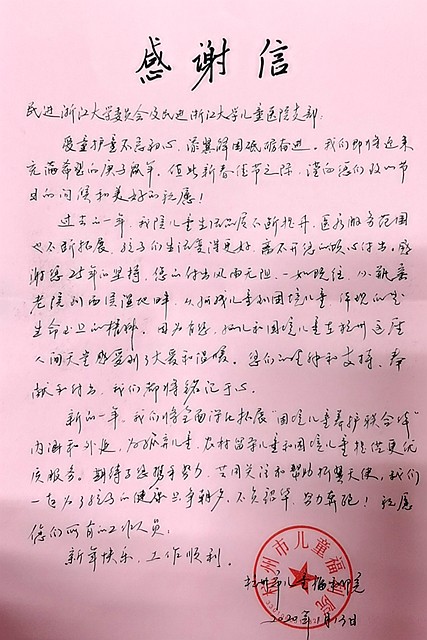 感谢信
民进浙江大学委员会及民进浙江大学儿童医院支部：
爱童护童不忘初心，添翼解困砥砺奋进。我们即将迎来
充满希望的庚子鼠年。值此新春佳节之际，谨向您们致以节
日的问候和美好的祝愿！
过去的一年，我院儿童生活品质不断提升，医疗服务范围
也不断拓展，孩子们生活变得更好，离不开您的爱心付出，感
谢您25年的坚持，您的付出风雨无阻，一如既往，从
老院到西溪湿地畔，从孤残儿童到困境儿童，体现的是
生命至上的精神。因为有您，孤儿和困境儿童在杭州这座
人间天堂感受到了大爱和温暖。您们的坚持和支持、奉
献和付出，我们都将铭记于心。
新的一年，我们将全面深化拓展“困境儿童养护联合体”
内涵和外延，为孤弃儿童、农村留守儿童和困境儿童提供更优
质服务。期待与您携手努力，共同关注和帮助折翼天使，我们
一起为了孩子的健康只争朝夕，不负韶华，努力奔跑！祝愿
您们所有的工作人员：
新年快乐，工作顺利。
杭州市儿童福利院
2020年1月13日
杭州市儿童福利院